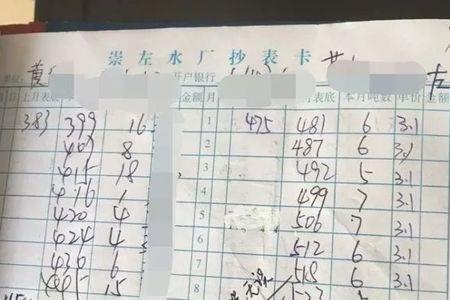 崇左水厂抄表卡
黄 开户银行
上月表底 金额 月 表底 本月吨数 单价 金额
383 399 16 1 475 481 6 3.1
407 8 2 487 6 3.1
415 18 3 492 5 3.1
416 1 4 499 7 3.1
420 4 5 506 7 3.1
424 4 6 512 6 3.1
430 6 7 518 6 3.1
15 8